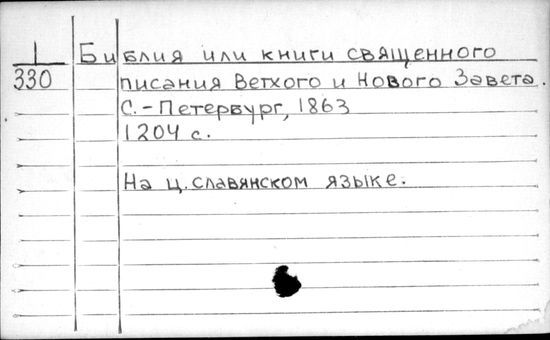 I
330
Библия или книги священного
писания Ветхого и Нового Завета.
С.-Петербург, 1863
1204 с.
На ц.славянском языке.